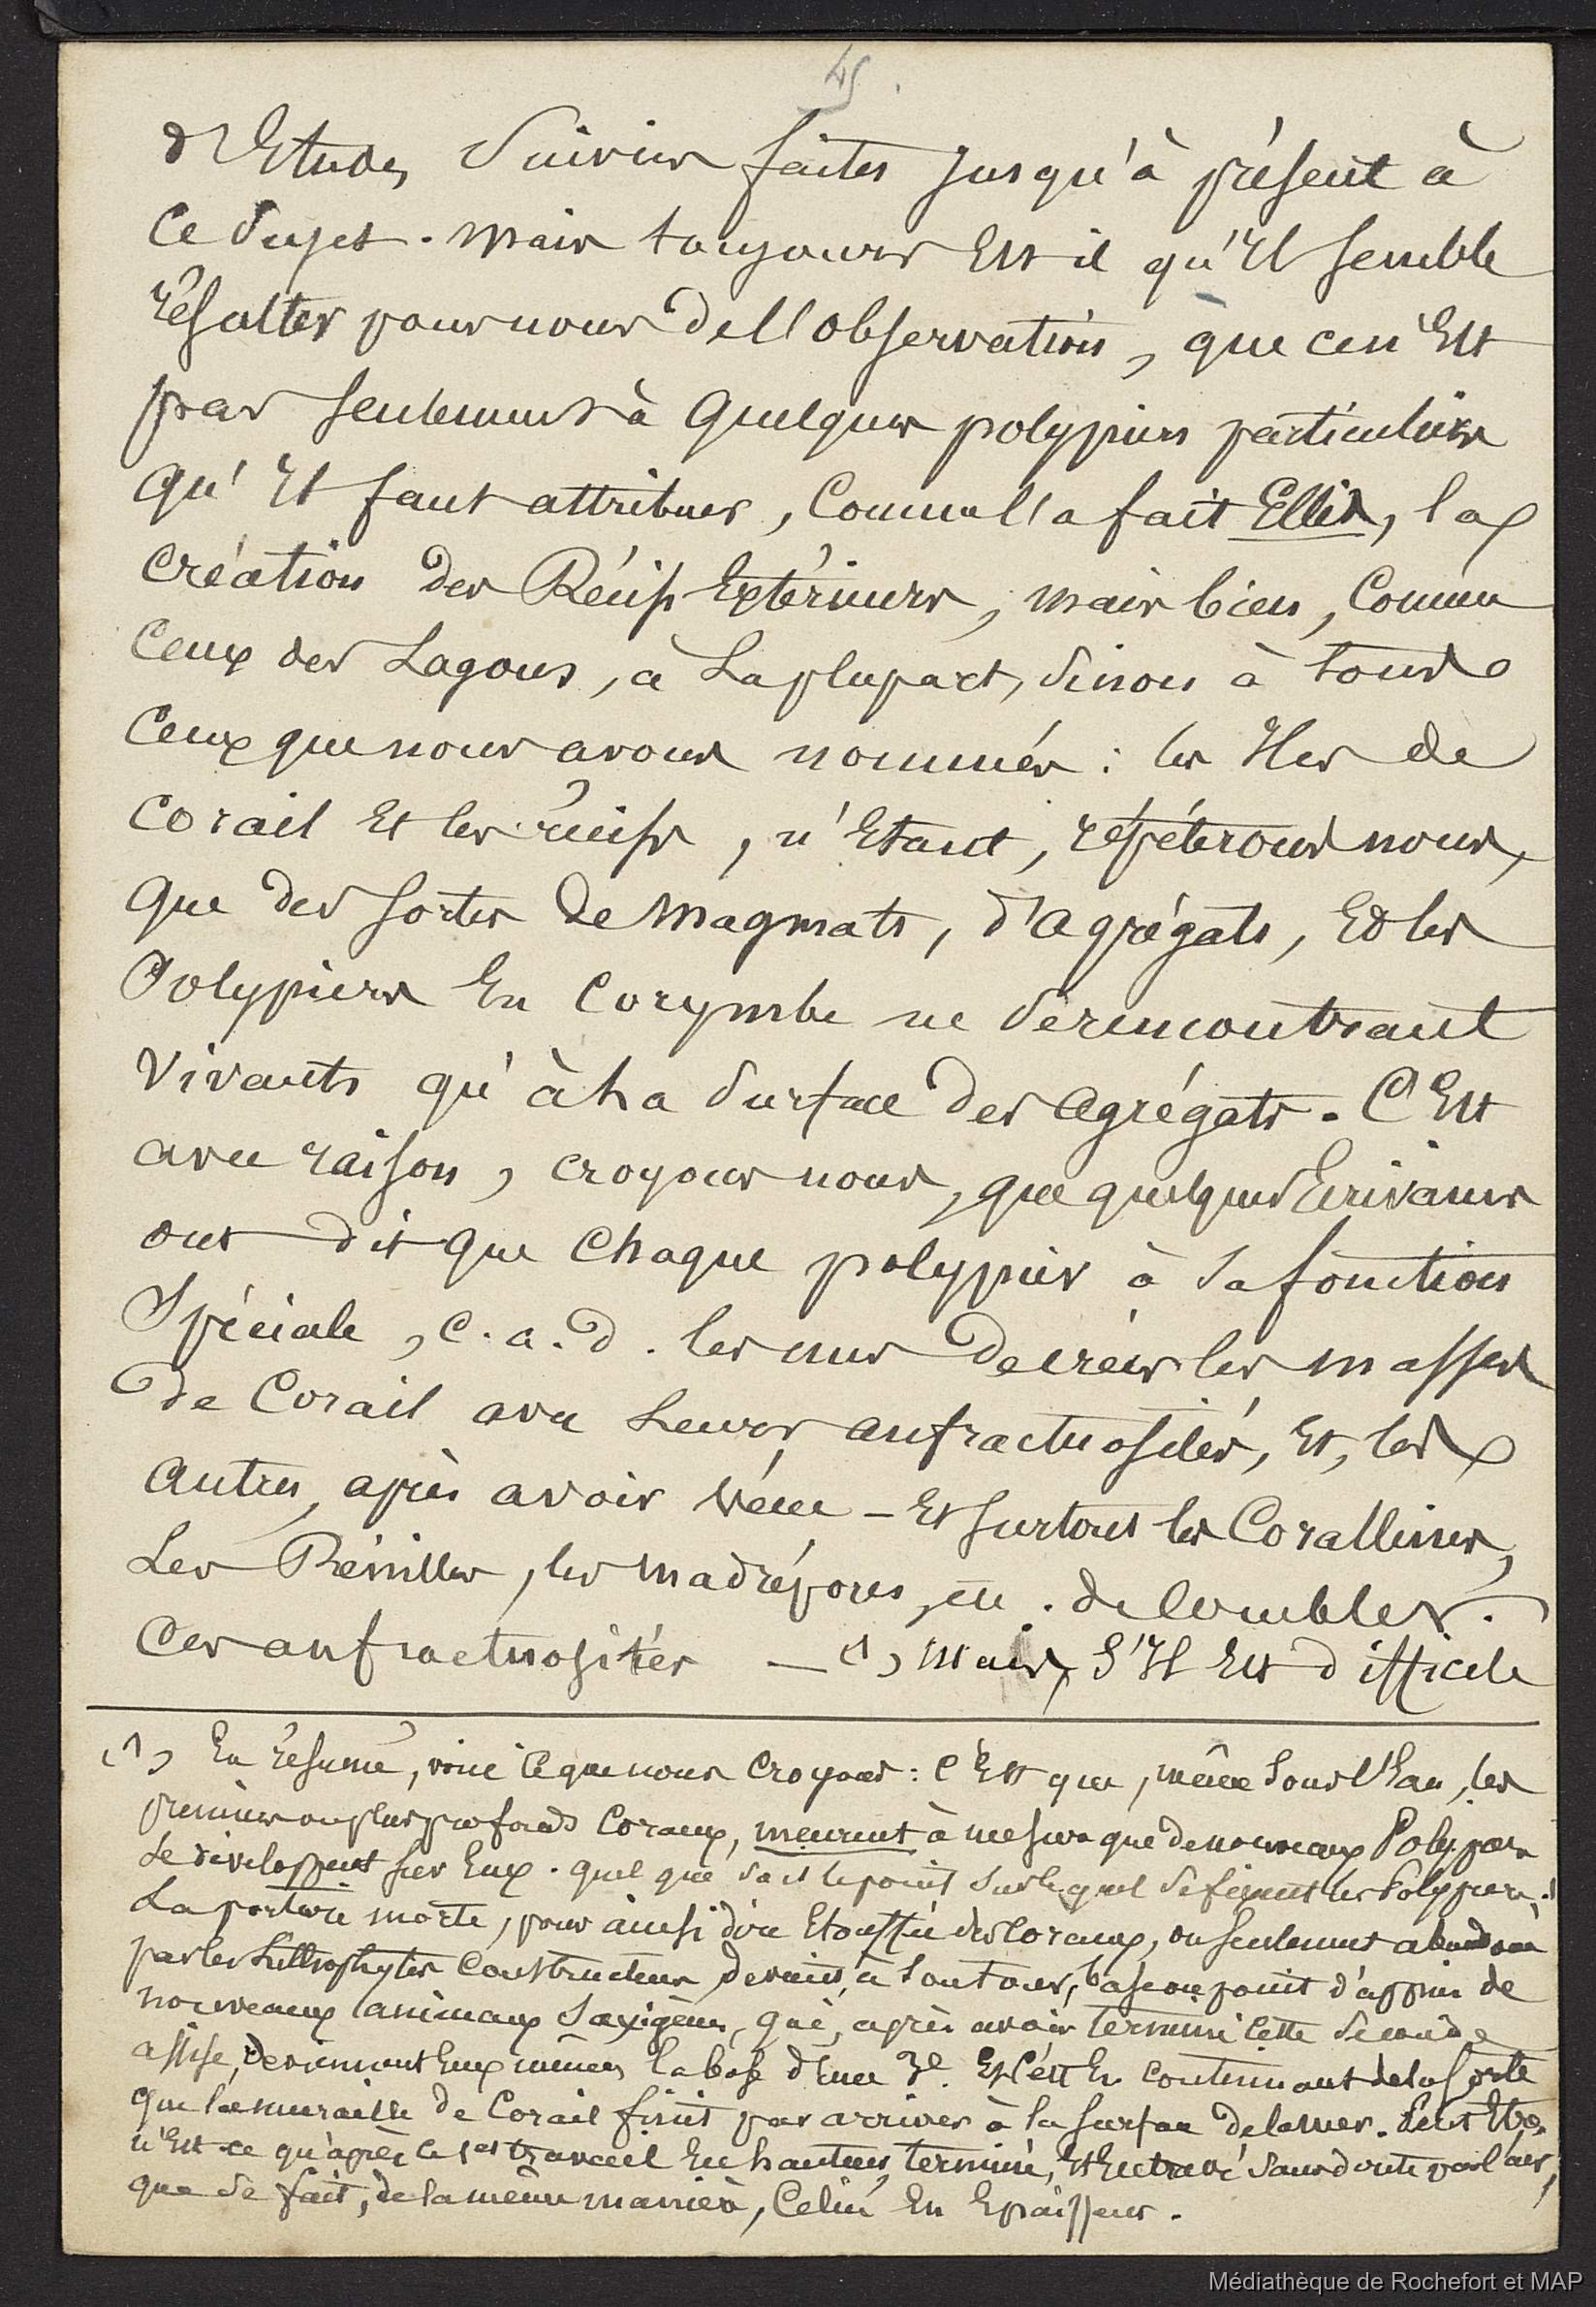 45.
d'Etudes suivies faites jusqu'à présent à
ce sujet. mais toujours Est il qu'Il semble
résulter pour nous de l'observation, que ce n'Est
pas seulement à quelques polypiers particuliers
qu'Il faut attribuer, comme l'a fait Ellis, la
création des Récifs Extérieurs, mais bien, comme
ceux des Lagons, à La plupart, sinon à tous
ceux que nous avons nommés : les Iles de
corail Et les récifs, n'Etant, répéterons nous,
que des sortes de magmats, d'agrégats, Et les
Polypiers En corymbe ne se rencontrant
vivants qu'à La surface des agrégats. C'Est
avec raison, croyons nous, que quelques Ecrivains
ont dit que chaque polypier à sa fonction
spéciale, c.a.d. les uns de créer les masses
de Corail avec Leurs anfractuosités, Et, les
autres, après avoir vécu - Et surtout les Corallines,
Les Rénilles, les madrépores, etc. de combler
ces anfractuosités — (1) mais, S'Il Est difficile
(1) En résumé, voici ce que nous croyons : c'Est que, même sous l'Eau, les
premiers ou plus profonds Coraux, meurent à mesure que de nouveaux Polypiers
se développent sur Eux. quel que soit le point sur lequel se fixent les Polypiers :
La portion morte, pour ainsi dire Etouffée des Coraux, ou seulement abandonnée
par les Lithophytes constructeurs, devient, à son tour, base ou point d'appui de
nouveaux animaux saxigènes, qui, après avoir terminé cette seconde
assise, deviennent Eux mêmes la base d'Une 3e. Et c'est En continuant de la sorte
que la muraille de Corail finit par arriver à la surface de la mer. Peut Etre
n'Est-ce qu'après le 1er travail En hauteur, terminé, Et Entravé sans doute par l'air,
que se fait, de la même manière, Celui En Epaisseur.
Médiathèque de Rochefort et MAP